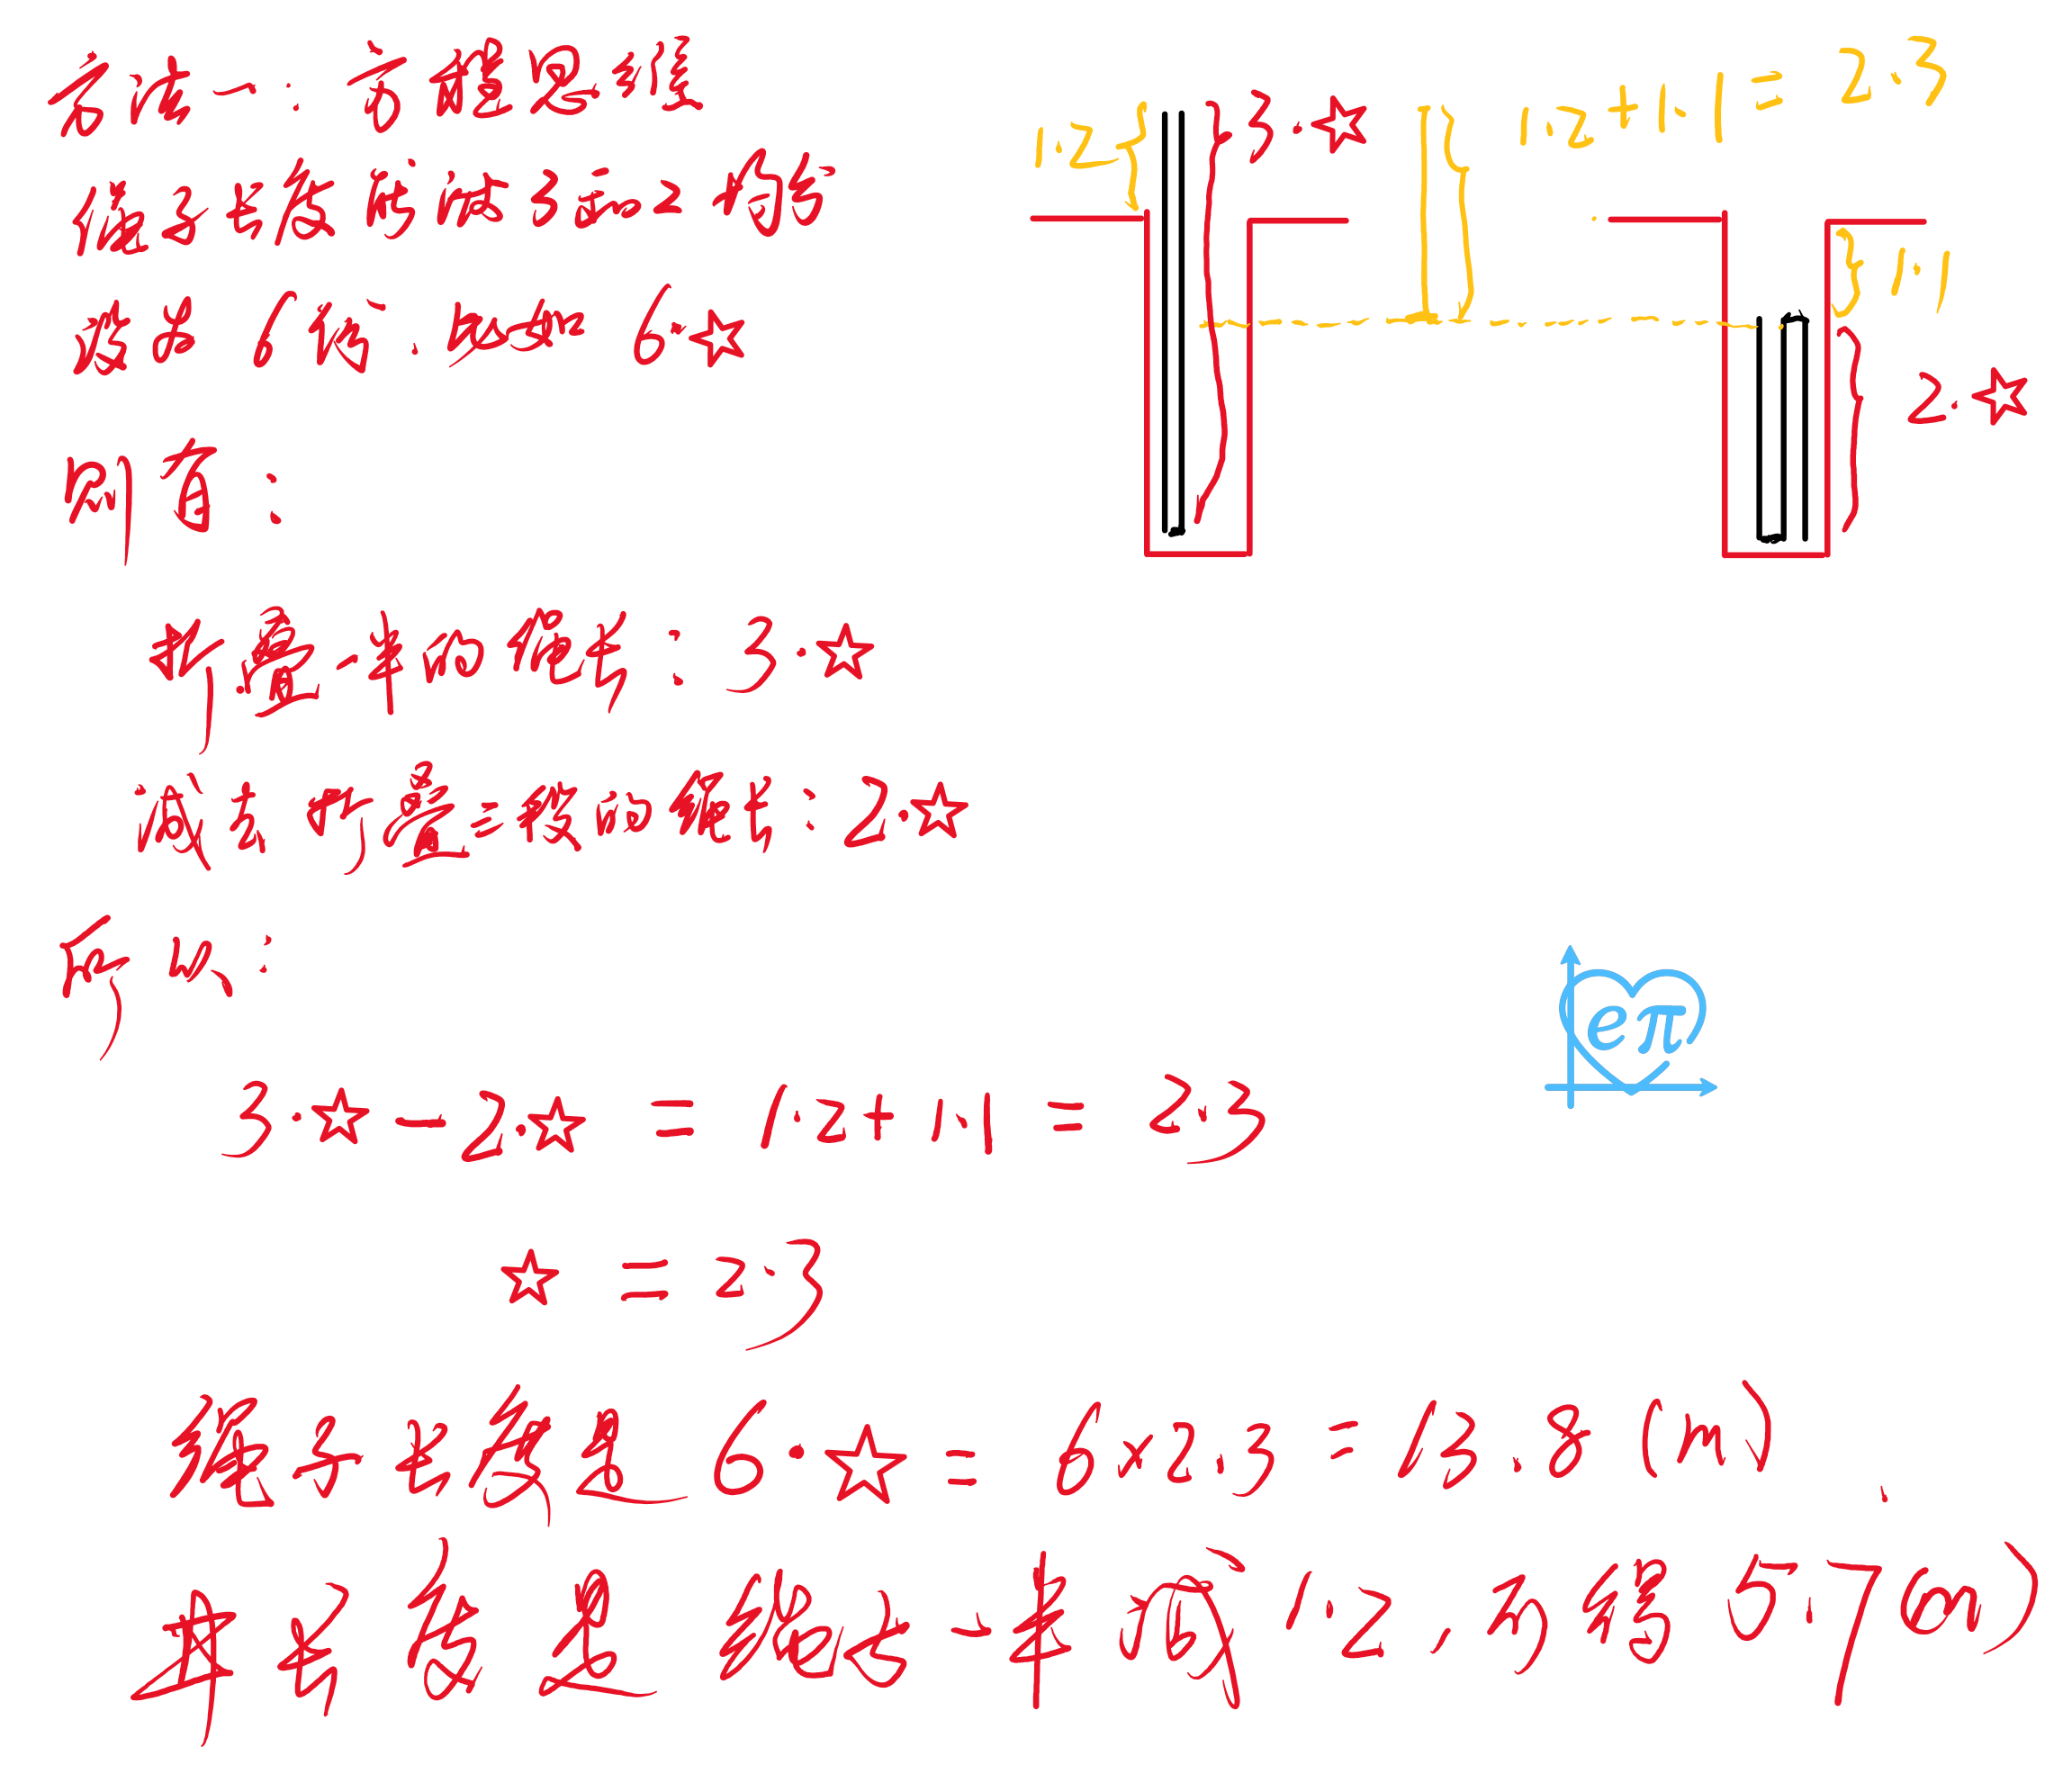 方法一：方程思维
绳子长能同时被3和2均分
设是6份．比如 6·☆
则有：
折叠一半的绳长：3·☆
减去折叠三段的绳长：2·☆
所以：
3·☆－2·☆ = 1.2+1.1 = 2.3
☆ = 2.3
绳子长度是 6·☆ = 6×2.3 = 13.8 (m)．
井深度是 绳长一半减 1.2，可得 5.7(m)
1.2
3·☆
1.2+1.1=2.3
1.1
2·☆
eπ